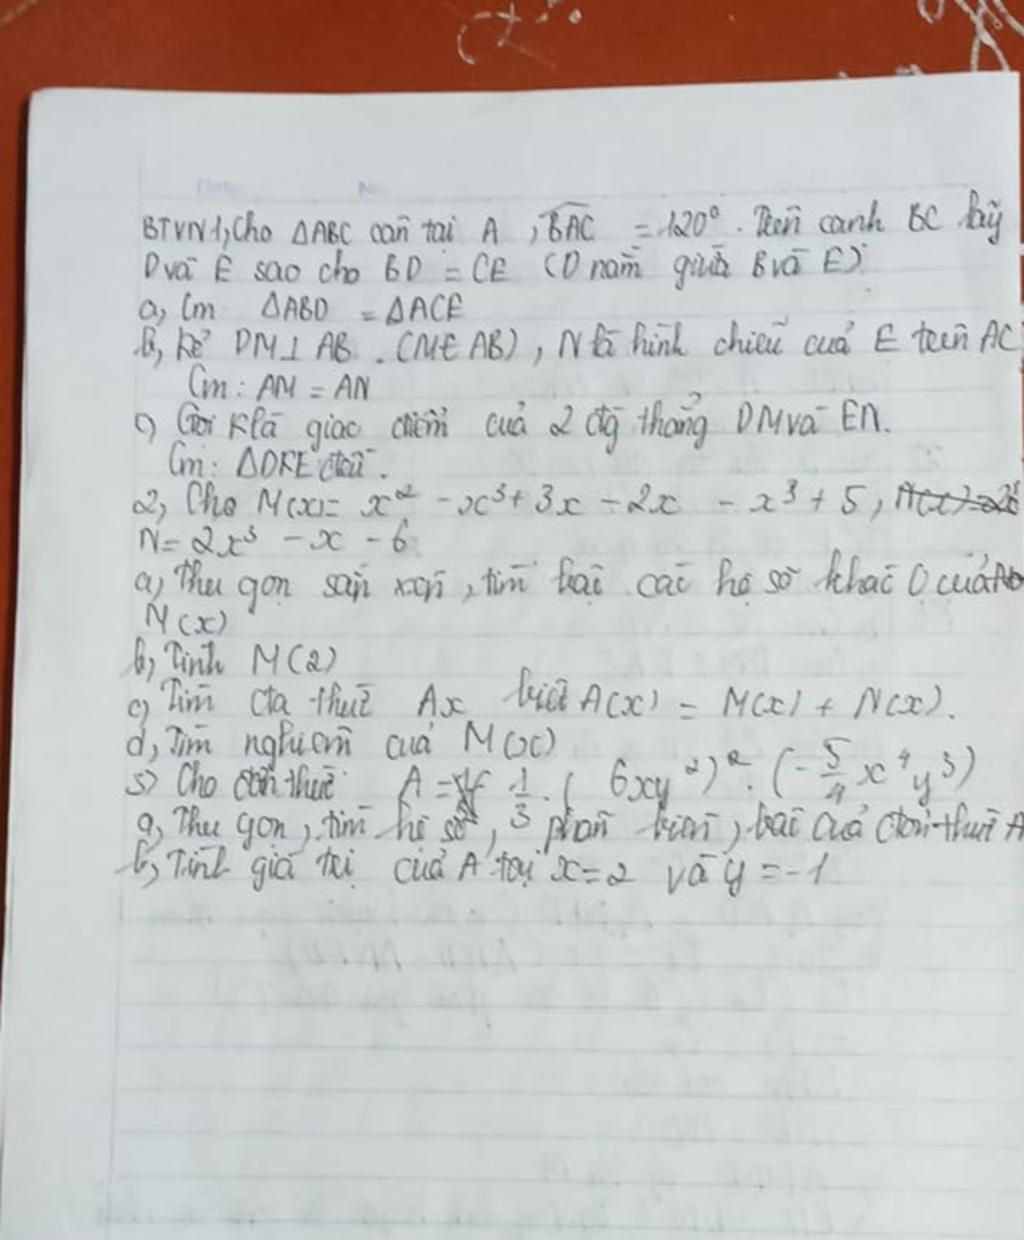 BTVN 1, Cho ΔABC cân tại A, BAC = 120°. Trên cạnh BC lấy
D và E sao cho BD = CE (D nằm giữa B và E)
a, Cm ΔABD = ΔACE
b, Kẻ DM⊥AB. (M∈AB), N là hình chiếu của E trên AC
Cm: AM = AN
c) Gọi K là giao điểm của 2 đg thẳng DM và EN.
Cm: ΔDKE đều.
2, Cho M(x)= x² - x³ + 3x - 2x - x³ + 5,
N = 2x³ - x - 6
a, Thu gọn sắp xếp, tìm bậc các hệ số khác 0 của
M(x)
b, Tính M(2)
c) Tìm đa thức Ax biết A(x) = M(x) + N(x).
d, Tìm nghiệm của M(x)
3) Cho đơn thức A = 1/3 . ( 6xy²)² . (-5/4 x⁴y³)
a, Thu gọn, tìm hệ số, phần biến, bậc của đơn thức A
b, Tính giá trị của A tại x=2 và y=-1